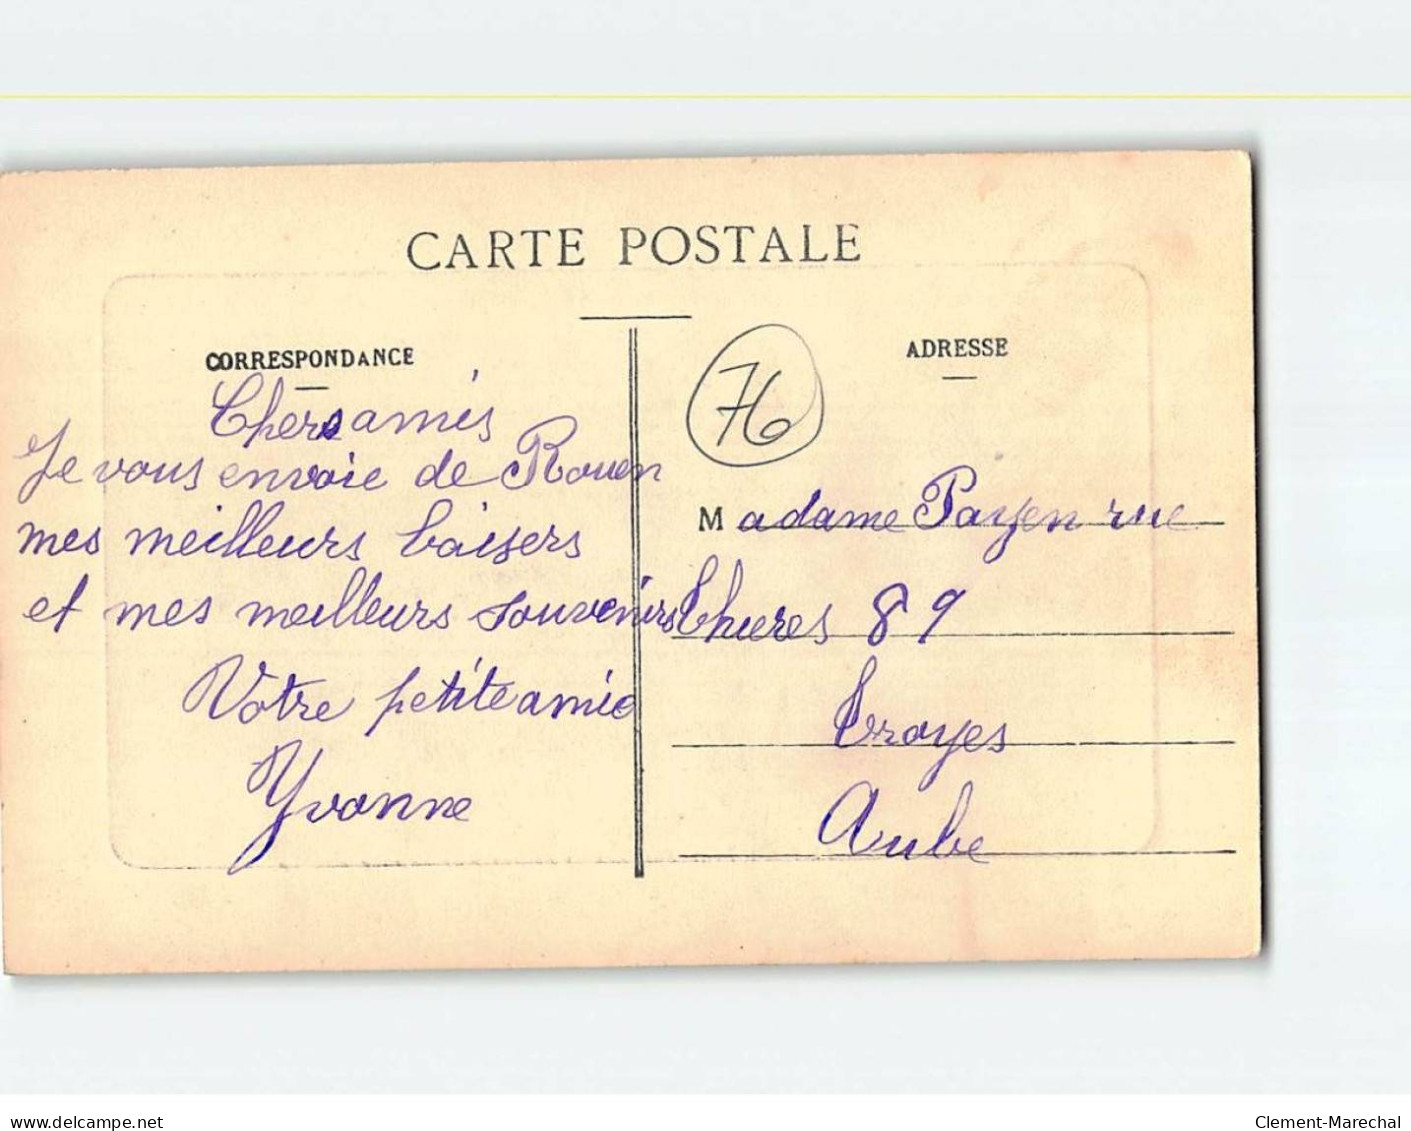 CARTE POSTALE
CORRESPONDANCE
Chers amis
Je vous envoie de Rouen
mes meilleurs baisers
et mes meilleurs souvenirs
Votre petite amie
Yvonne
76
ADRESSE
Madame Payen rue
Thieres 89
Troyes
Aube
www.delcampe.net
Clement-Marechal